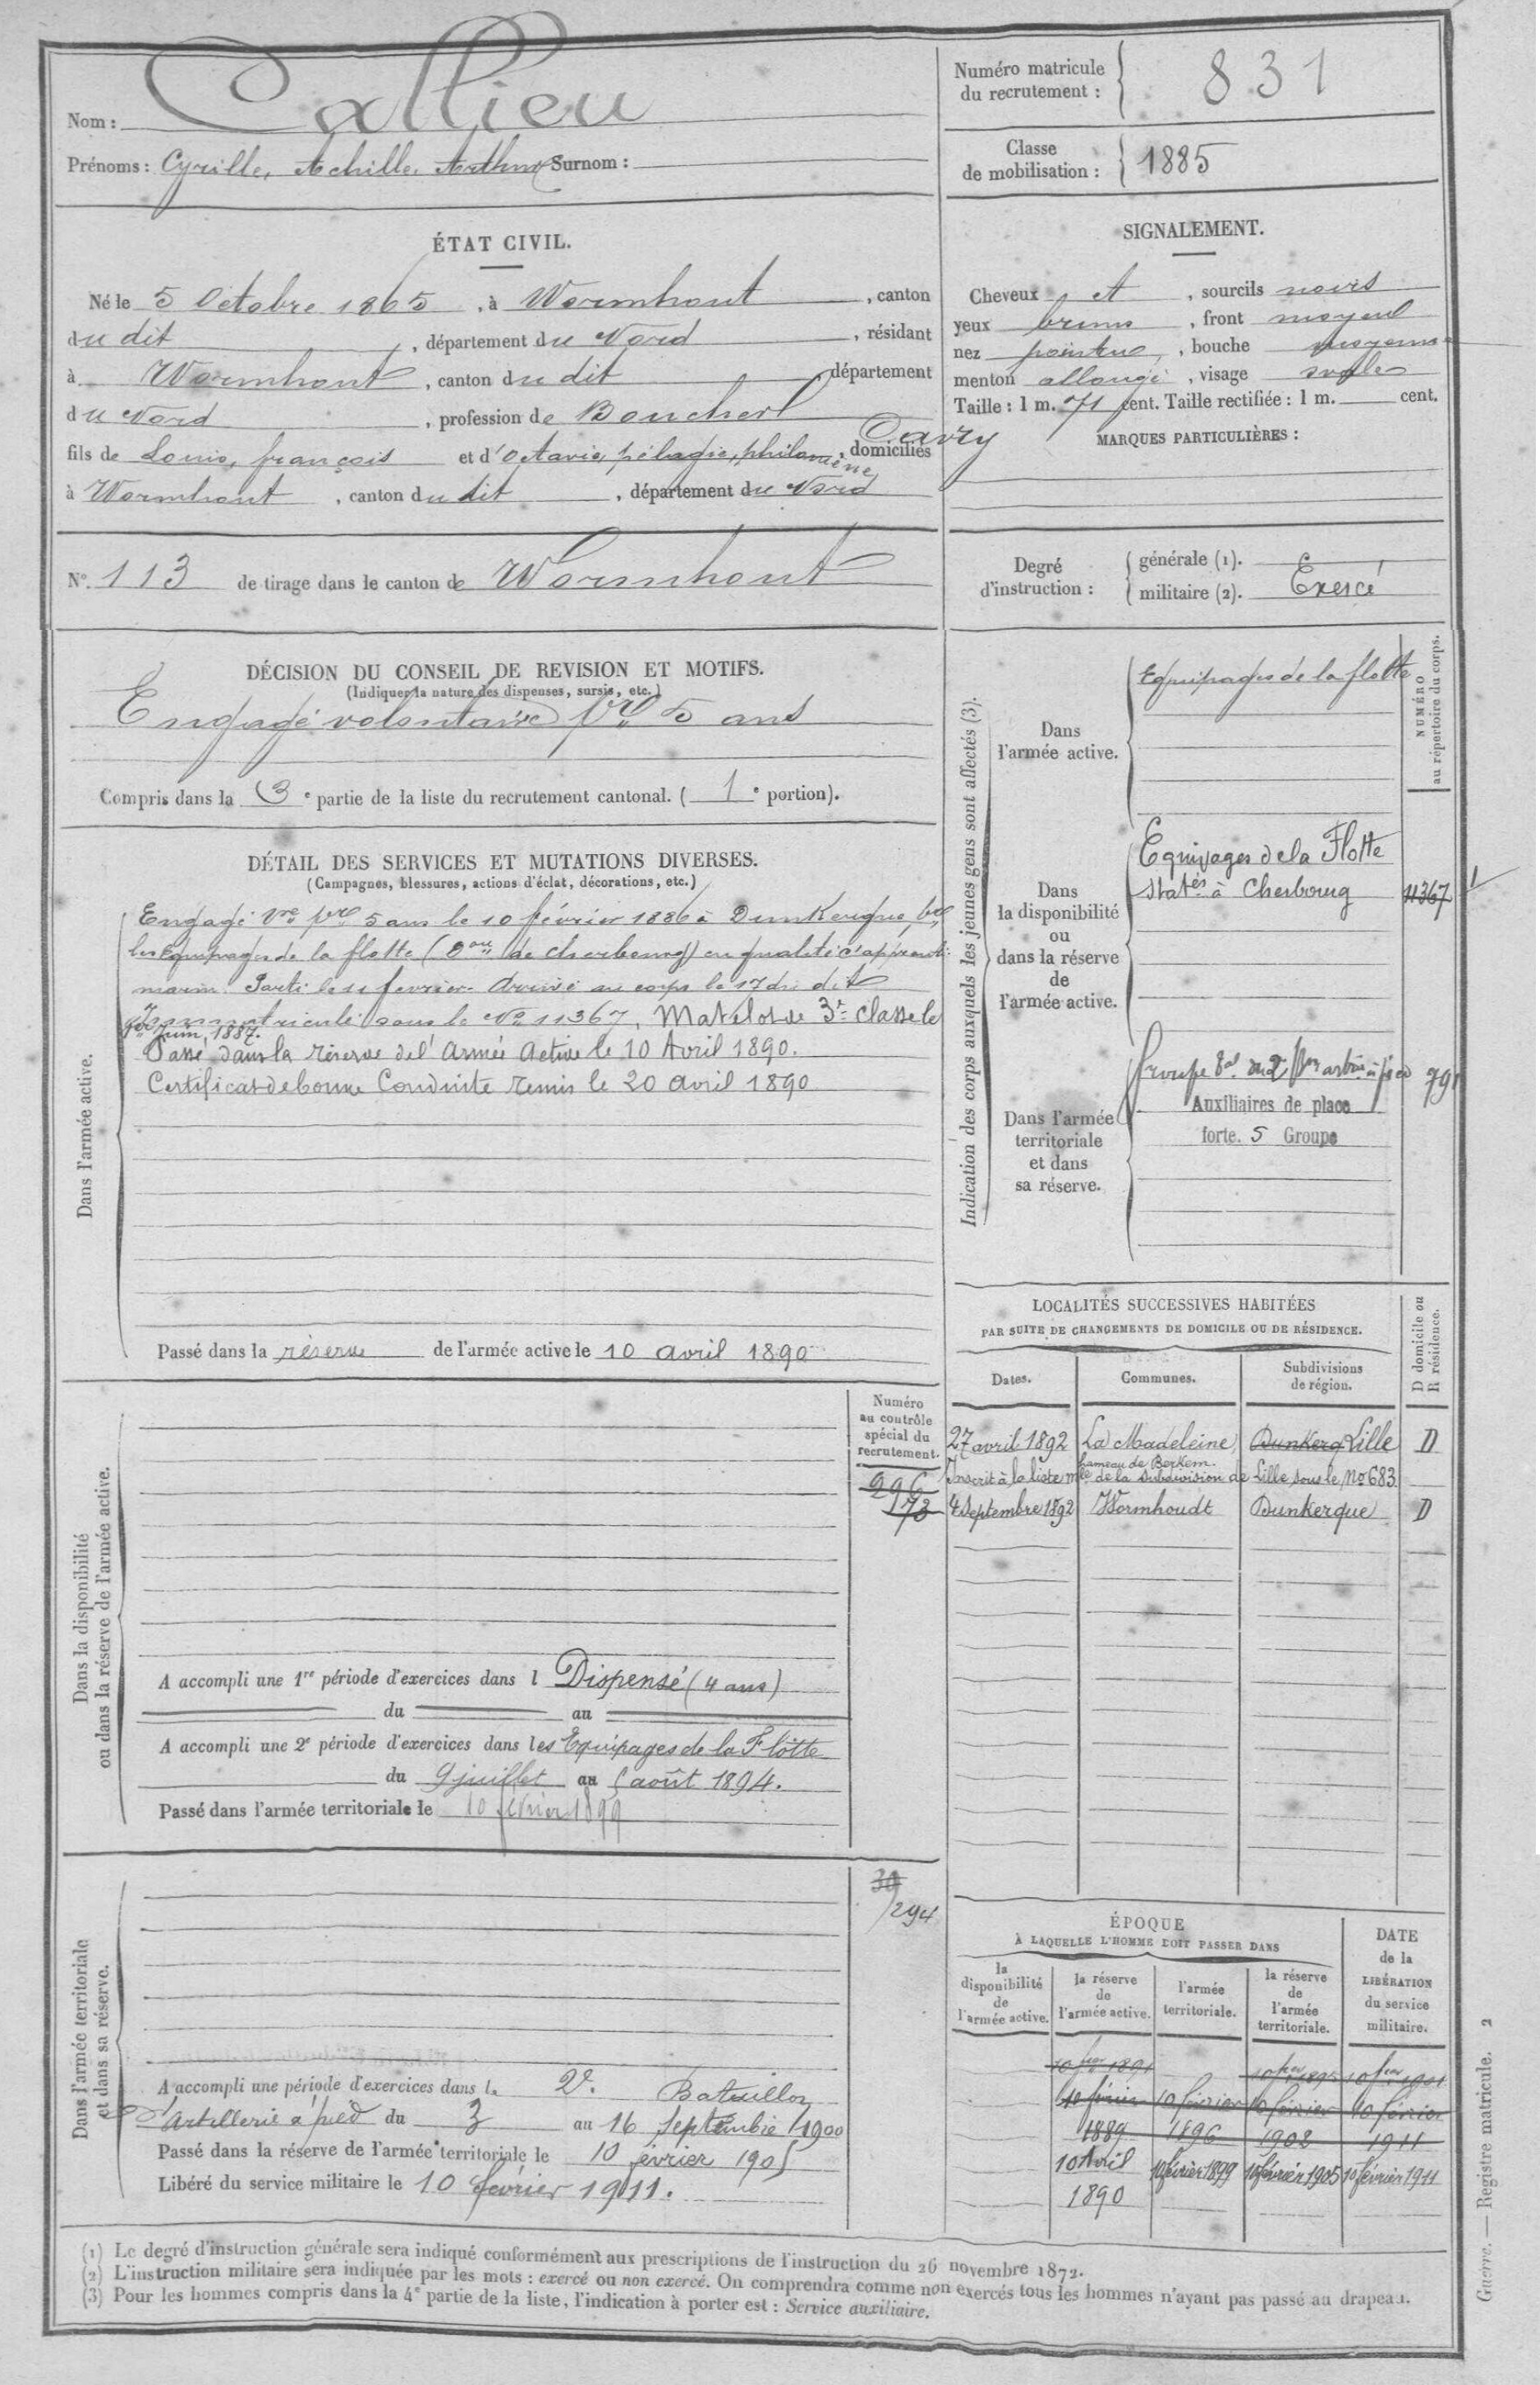 Nom : Callieu
Prénoms : Cyrille, Achille, Arthur Surnom :
Numéro matricule du recrutement : 831
Classe de mobilisation : 1885
ÉTAT CIVIL.
Né le 5 Octobre 1865, à Wormhout, canton
du dit, département du Nord, résidant
à Wormhout, canton du dit, département
du Nord, profession de Boucher
fils de Louis, françois et d'Octavie, pélagie, philomène Davry, domiciliés
à Wormhout, canton du dit, département du Nord
SIGNALEMENT.
Cheveux et, sourcils noirs
yeux bruns, front moyen
nez pointu, bouche moyenne
menton allongé, visage ovale
Taille : 1 m. 71 cent. Taille rectifiée : 1 m. cent.
MARQUES PARTICULIÈRES :
N° 113 de tirage dans le canton de Wormhout
Degré d'instruction : générale (1).
militaire (2). Exercé
DÉCISION DU CONSEIL DE REVISION ET MOTIFS.
(Indiquer la nature des dispenses, sursis, etc.)
Engagé volontaire pr 5 ans
Compris dans la 3e partie de la liste du recrutement cantonal. (1e portion).
DÉTAIL DES SERVICES ET MUTATIONS DIVERSES.
(Campagnes, blessures, actions d'éclat, décorations, etc.)
Dans l'armée active.
Engagé vre pr 5 ans le 10 février 1886 à Dunkerque, pr
les Equipages de la flotte (Don de Cherbourg) en qualité d'apprenti
marin. Parti le 11 février. Arrivé au corps le 17 du dit
Immatriculé sous le No 11367, Matelot de 3e Classe le
1er Juin, 1887.
Passé dans la réserve de l'Armée Active le 10 Avril 1890.
Certificat de bonne Conduite remis le 20 avril 1890
Passé dans la réserve de l'armée active le 10 avril 1890
Indication des corps auxquels les jeunes gens sont affectés (3).
NUMÉRO au répertoire du corps.
Dans l'armée active.
Equipages de la flotte
Dans la disponibilité ou dans la réserve de l'armée active.
Equipages de la Flotte
statés à Cherbourg 11367
Dans l'armée territoriale et dans sa réserve.
Groupe à pied 791
Auxiliaires de place
forte. 5 Groupe
LOCALITÉS SUCCESSIVES HABITÉES
PAR SUITE DE CHANGEMENTS DE DOMICILE OU DE RÉSIDENCE.
D domicile ou R résidence.
Dates. Communes. Subdivisions de région.
27 avril 1892 La Madeleine, Dunkerq Lille D
hameau de Berkem.
Inscrit à la liste mle de la subdivision de Lille sous le No 683
4 Septembre 1892 Wormhoudt Dunkerque D
Dans la disponibilité ou dans la réserve de l'armée active.
Numéro au contrôle spécial du recrutement.
296
73
A accompli une 1re période d'exercices dans l Dispensé (4 ans)
du au
A accompli une 2e période d'exercices dans les Equipages de la Flotte
du 9 juillet au 5 août 1894.
Passé dans l'armée territoriale le 10 février 1899
Dans l'armée territoriale et dans sa réserve.
30
294
A accompli une période d'exercices dans le 2e. Bataillon
d'Artillerie à pied du 3 au 16 Septembre 1900
Passé dans la réserve de l'armée territoriale le 10 février 1905
Libéré du service militaire le 10 février 1911.
ÉPOQUE
À LAQUELLE L'HOMME DOIT PASSER DANS
la disponibilité de l'armée active. la réserve de l'armée active. l'armée territoriale. la réserve de l'armée territoriale. DATE de la LIBÉRATION du service militaire.
10 fer 1891 10 fer 10 fer
10 février 10 février 10 février 10 février
1889 1896 1902 1911
10 Avril 10 février 1899 10 février 1905 10 février 1911
1890
(1) Le degré d'instruction générale sera indiqué conformément aux prescriptions de l'instruction du 26 novembre 1872.
(2) L'instruction militaire sera indiquée par les mots : exercé ou non exercé. On comprendra comme non exercés tous les hommes n'ayant pas passé au drapeau.
(3) Pour les hommes compris dans la 4e partie de la liste, l'indication à porter est : Service auxiliaire.
Guerre. — Registre matricule. 2